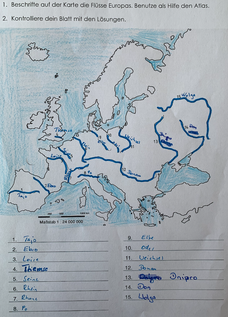 1. Beschrifte auf der Karte die Flüsse Europas. Benutze als Hilfe den Atlas.
2. Kontrolliere dein Blatt mit den Lösungen.
Themse
Maßstab 1 : 24 000 000
1. Tajo
2. Ebro
3. Loire
4. Themse
5. Seine
6. Rhein
7. Rhone
8. Po
9. Elbe
10. Oder
11. Weichsel
12. Donau
13. Dnipro
14. Don
15. Wolga